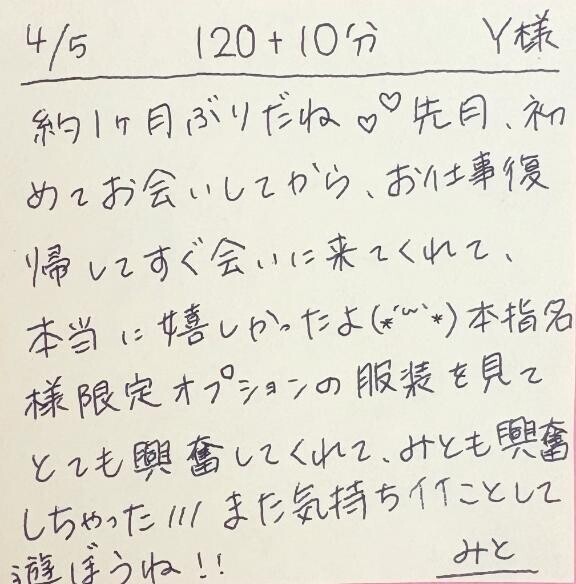 4/5 120+10分 Y様
約1ヶ月ぶりだね♡♡先月、初
めてお会いしてから、お仕事復
帰してすぐ会いに来てくれて、
本当に嬉しかったよ(*´˘`*)本指名
様限定オプションの服装を見て
とても興奮してくれて、みとも興奮
しちゃった///また気持ちイイことして
遊ぼうね!!
みと